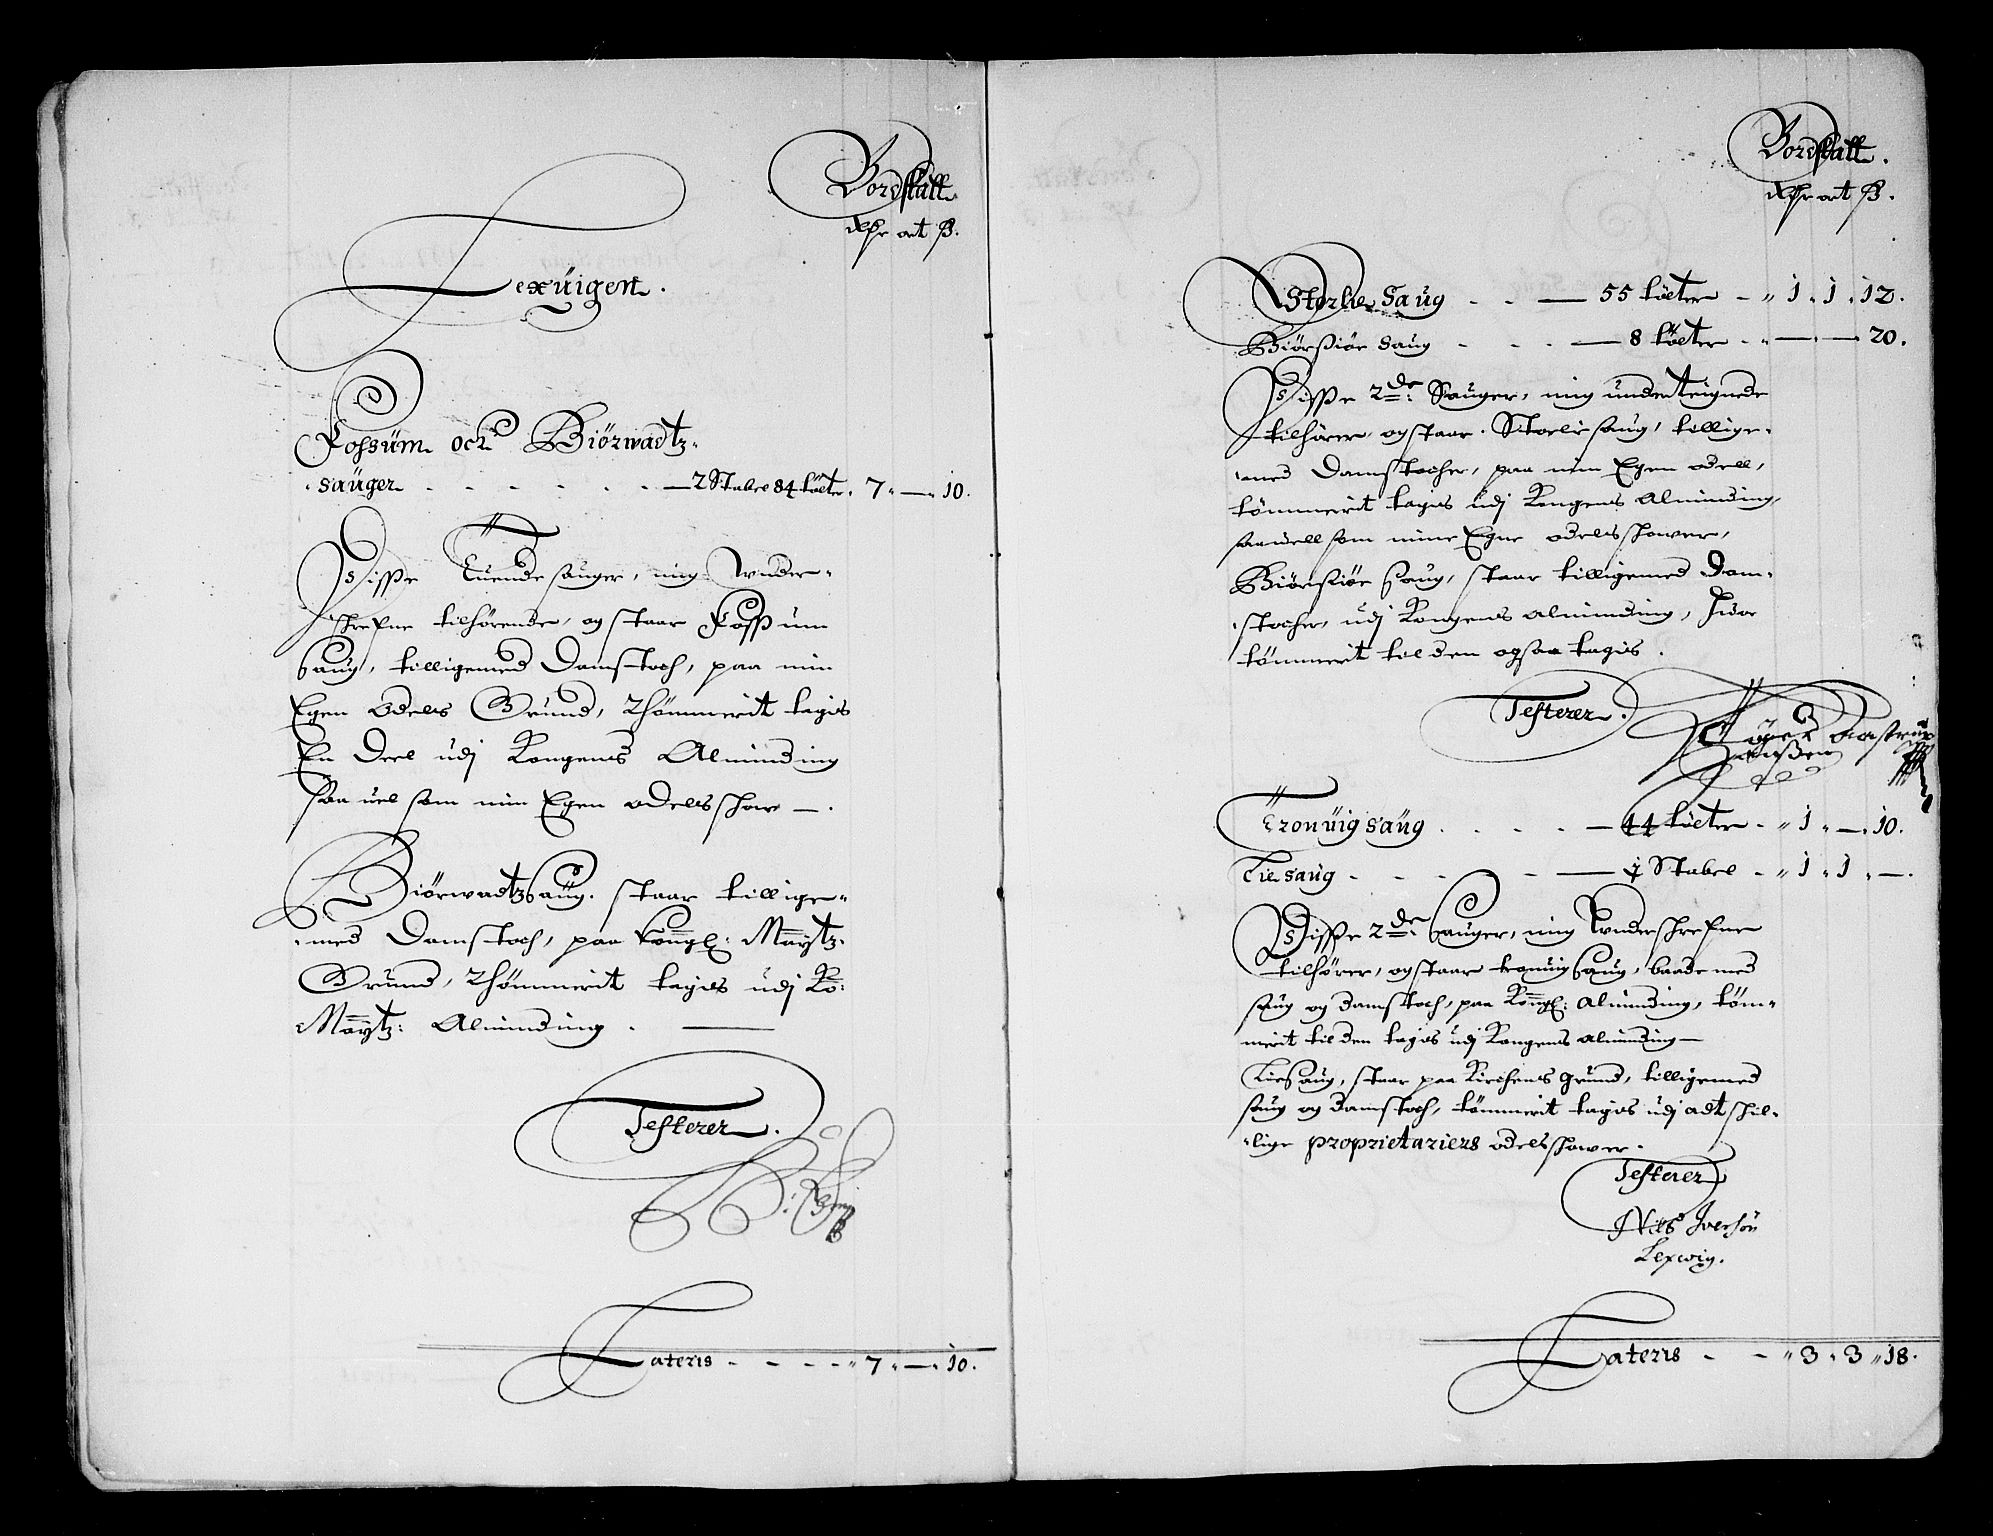 Bordskatt
Rdr ort ß.
Lexüigen.
Fossüm och Biörwadtz
saüger - - - - - - 2 Stabel 84 tölter. 7 „ — „ 10.
Disse Tuende sauger, mig under-
skrefne tilhørende, og staar Fossum
Saug, tilligemed Damstoch, paa min
Egen Odels Grund, Thömmerit tagis
En Deel udj Kongens Alminding
saa vel som min Egen odelsskow —.
Biörwadtz Saug. staar tillige-
med Damstoch, paa Kongl: Maytz.
Grund, Thömmerit tagis udj Ko:
Maytz: Alminding. —
Testerer.
Lateris - - - - „ 7 „ — „ 10.
Bordskatt.
Rdr ort ß.
Storke Saug - - — 55 tölter - „ 1 „ 1 „ 12.
Biörsiöe Saug - - - — 8 tölter - „ — „ — 20.
Disse 2de: Sauger, mig underteignede
tilhörer, og staar Storkesaug, tillige-
med Damstocher, paa min Egen odell,
tömmerit tagis udj Kongens Alminding,
saavell som mine Egne odelsskower,
Biörsiöe Saug, staar tilligemed Dam-
stocher, udj Kongens alminding, huor
tömmerit til den ogsaa tagis.
Testerer.
Tronüig saüg . - - - — 44 tölter - „ 1 „ — „ 10.
Lie saug - - - - - — 1 Stabel - „ 1 „ 1 „ —.
Disse 2de: Sauger, mig Underskrefne
tilhörer, og staar tronuig Saug, baade med
saug og damstoch, paa Kongl: alminding, töm-
merit til den tagis udj Kongens alminding —
Lie Saug, staar paa Kirchens grund, tilligemed
saug og damstoch, tömmerit tagis udj adtskil-
lige proprietariers odelsskower.
Testerer
Nils Iversön
Lexwig.
Lateris - - „ 3 „ 3 „ 18.